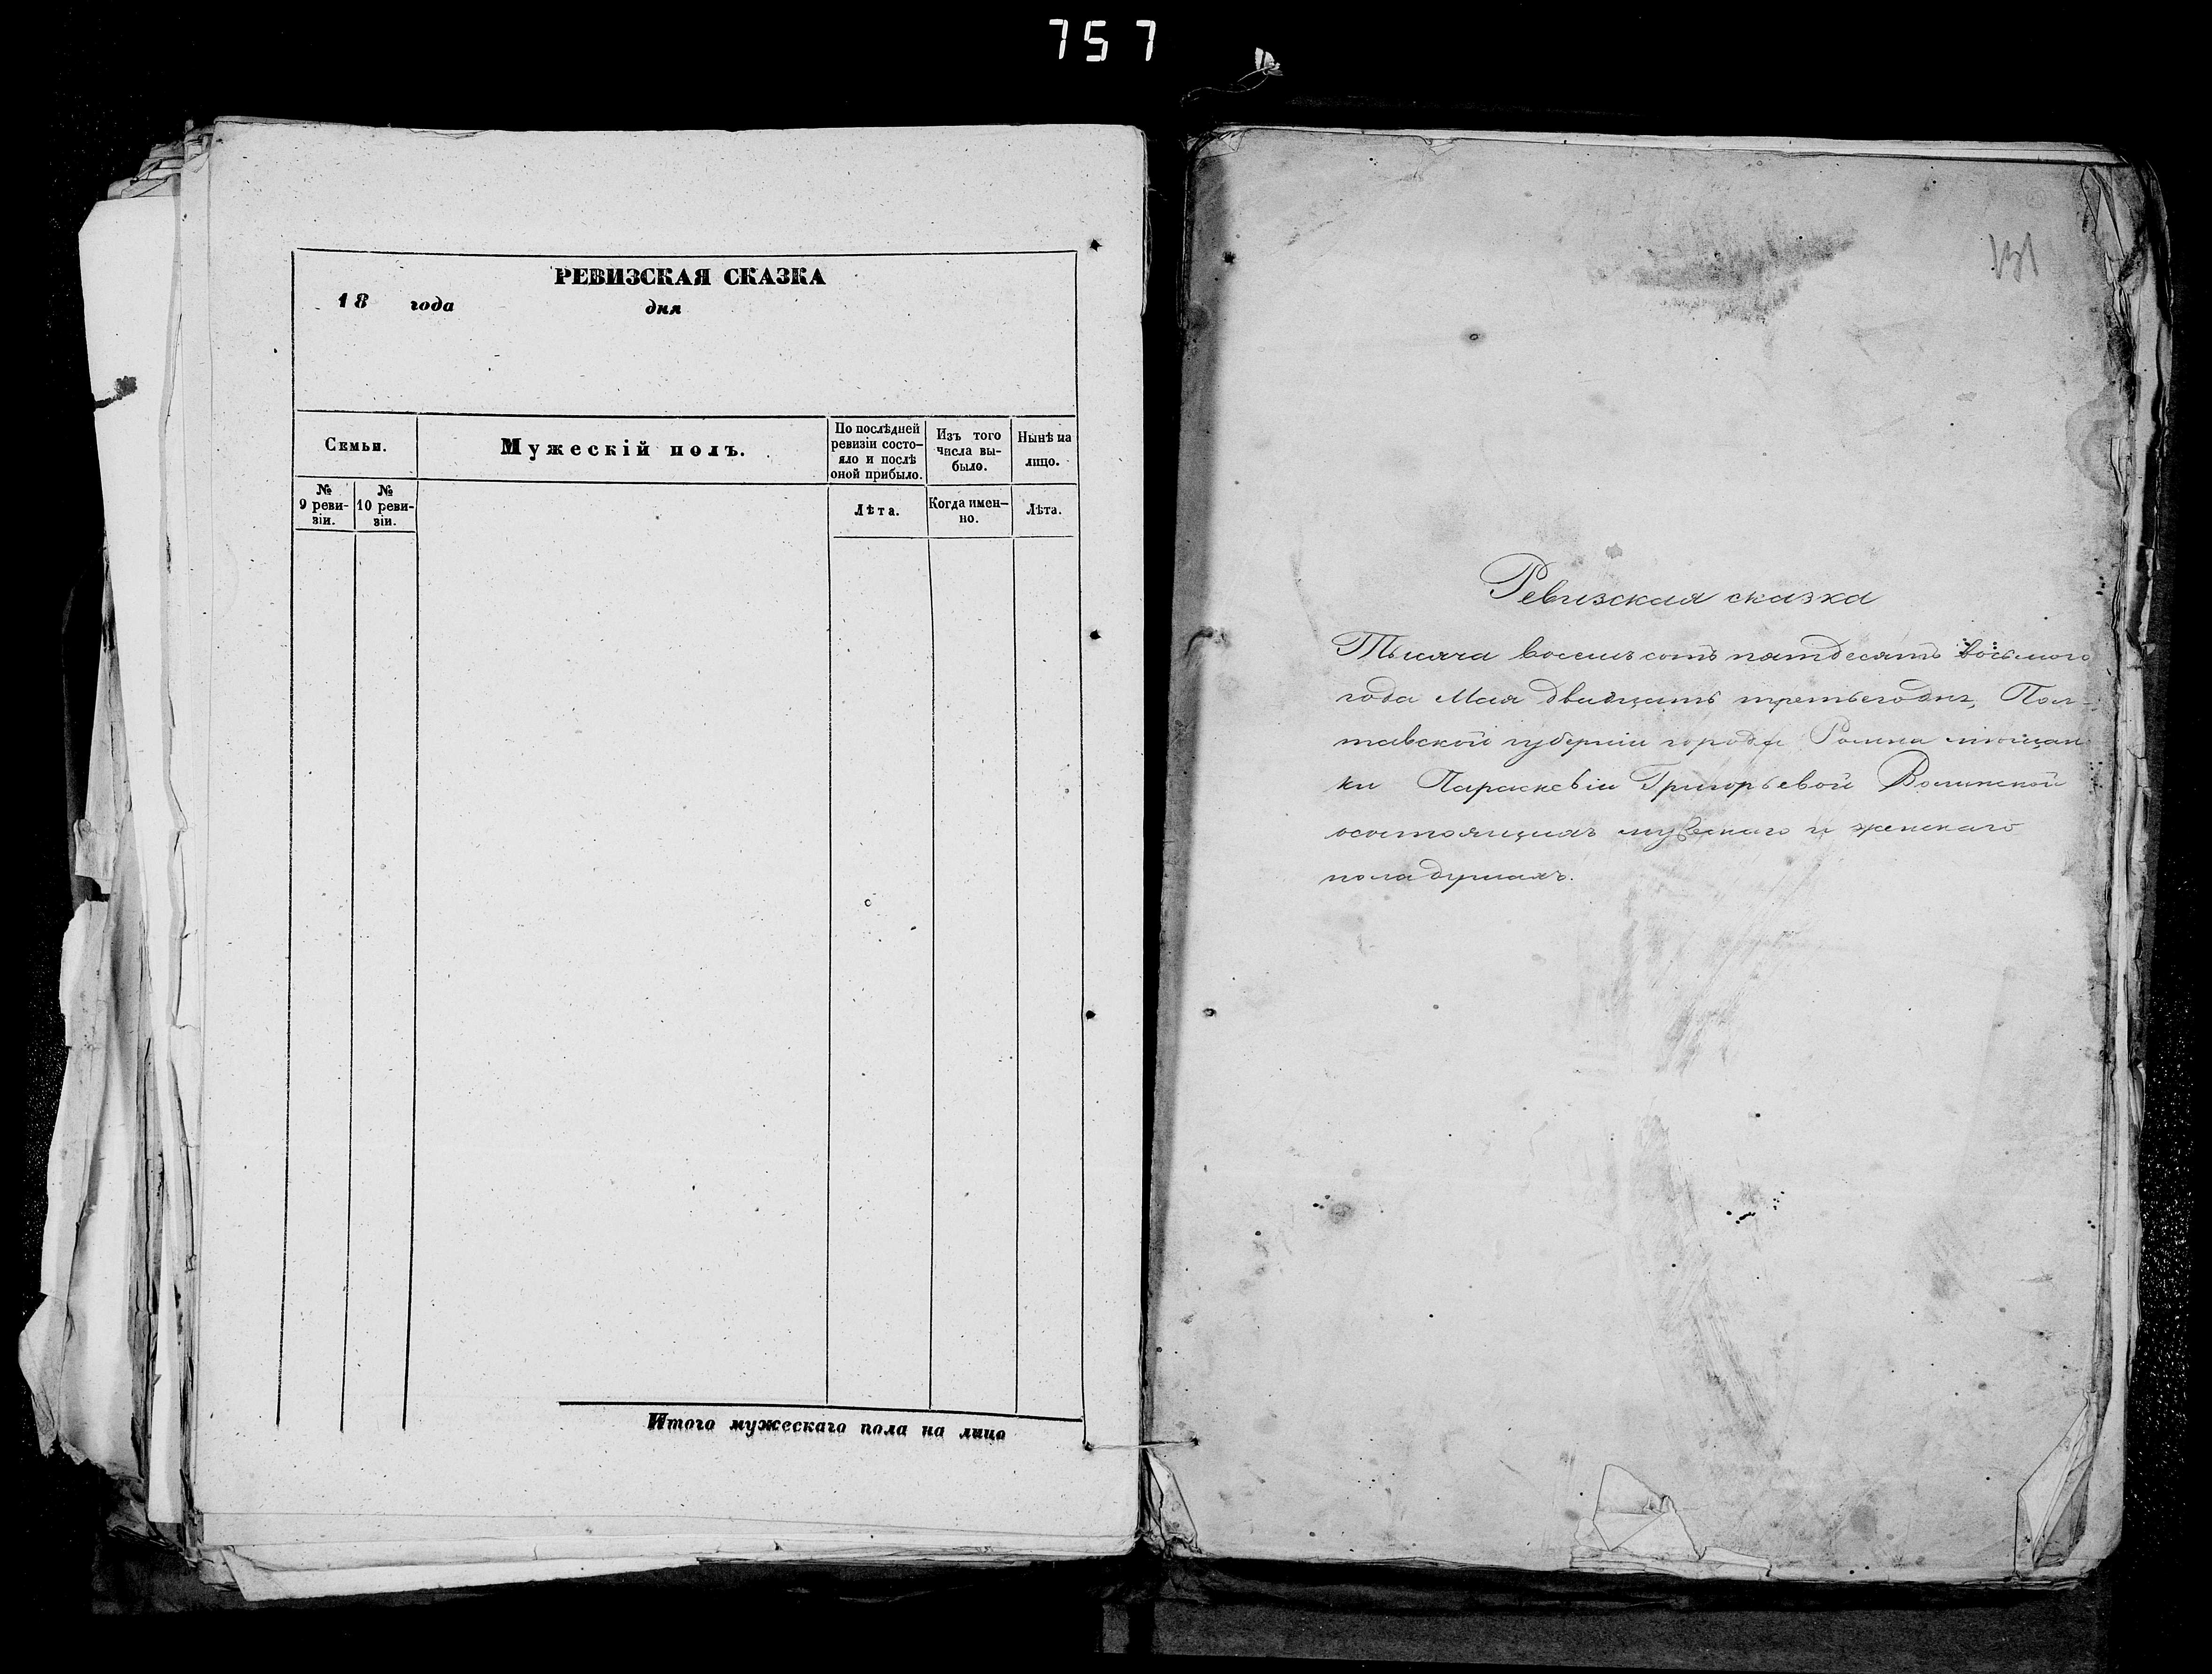 757
РЕВИЗСКАЯ СКАЗКА
18 года дня
Семьи.
Мужескій полъ.
По послѣдней
ревизіи состо-
яло и послѣ
оной прибыло.
Изъ того
числа вы-
было.
Нынѣ на
лицо.
№
9 реви-
зіи.
№
10 реви-
зіи.
Лѣта.
Когда имен-
но.
Лѣта.
Итого мужескаго пола на лицо
131
Ревизская сказка
Тысяча восемьсотъ пятдесятъ восьмого
года Мая двадцать третьего дня, Пол-
тавской губерніи города Ромна мѣщан
ки Параскевіи Григорьевой Волинской
осостоящихъ мужскаго и женскаго
пола душахъ.